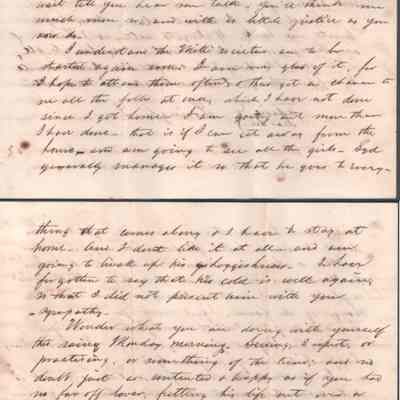 wait till you hear me talk. You'd think me
much more so and with as little justice as you
now do.
I understand the White socities are to be
started again soon. I am very glad of it, for
I hope to attend them often & thus get a chance to
see all the folks at once, which I have not done
since I got home. I am going out more than
I have done. that is if I can get away from the
house, and am going to see all the girls. Syd
generally manages it so that he goes to every-
thing that comes along & I have to stay at
home. And I dont like it at all and am
going to break up his doggishness. I have
forgotten to say that his cold is well again,
so that I did not present him with your
sympathy.
Wonder what you are doing with yourself
this rainy Monday morning. Sewing, I expect, or
practising, or something of the kind, and no
doubt just as contented & happy as if you had
no far off lover, fretting his life out over a